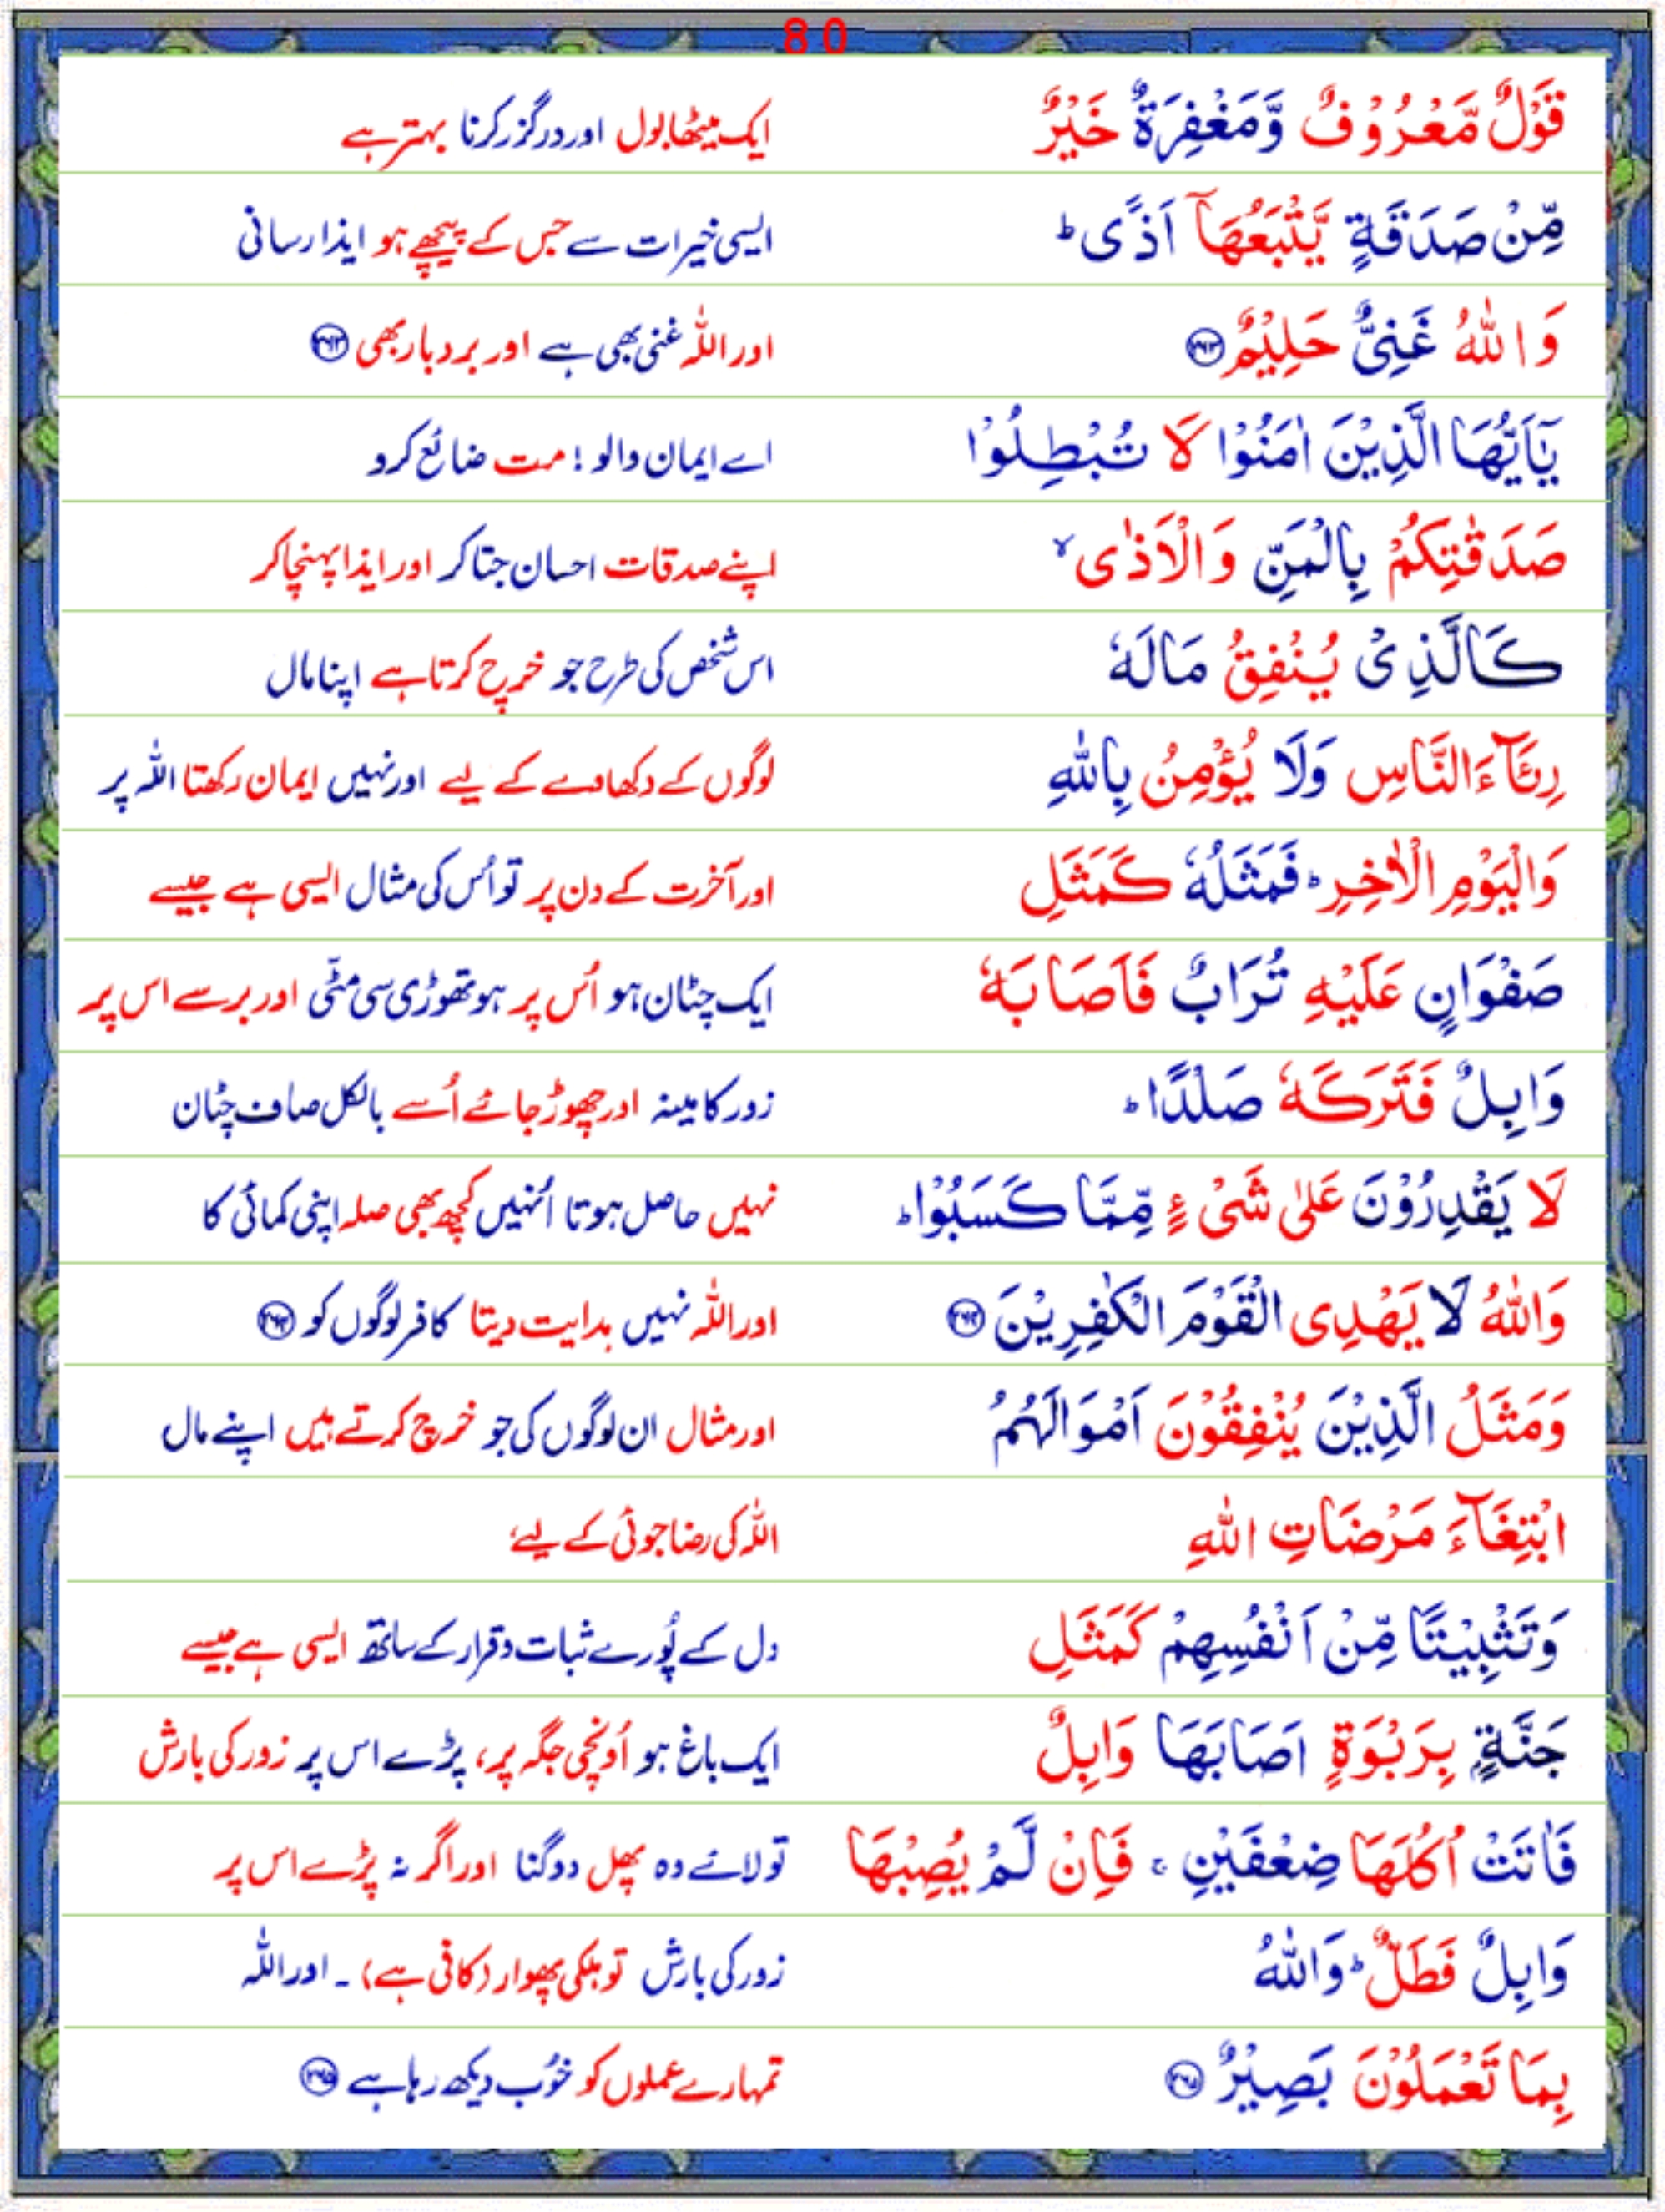 80
قَوْلٌ مَّعْرُوْفٌ وَّمَغْفِرَةٌ خَيْرٌ ایک میٹھا بول اور درگزر کرنا بہتر ہے
مِّنْ صَدَقَةٍ يَّتْبَعُهَاۤ اَذًى ؕ ایسی خیرات سے جس کے پیچھے ہو ایذا رسانی
وَ اللّٰهُ غَنِىٌّ حَلِيْمٌ ﴿۲۶۳﴾ اور اللہ غنی بھی ہے اور بردبار بھی ﴿۲۶۳﴾
يٰۤاَيُّهَا الَّذِيْنَ اٰمَنُوْا لَا تُبْطِلُوْا اے ایمان والو ! مت ضائع کرو
صَدَقٰتِكُمْ بِالْمَنِّ وَ الْاَذٰى ۙ اپنے صدقات احسان جتا کر اور ایذا پہنچا کر
كَالَّذِىْ يُنْفِقُ مَالَهٗ اس شخص کی طرح جو خرچ کرتا ہے اپنا مال
رِئَآءَ النَّاسِ وَلَا يُؤْمِنُ بِاللّٰهِ لوگوں کے دکھاوے کے لیے اور نہیں ایمان رکھتا اللہ پر
وَالْيَوْمِ الْاٰخِرِ ؕ فَمَثَلُهٗ كَمَثَلِ اور آخرت کے دن پر تو اُس کی مثال ایسی ہے جیسے
صَفْوَانٍ عَلَيْهِ تُرَابٌ فَاَصَابَهٗ ایک چٹان ہو اُس پر ہو تھوڑی سی مٹّی اور برسے اس پر
وَابِلٌ فَتَرَكَهٗ صَلْدًا ؕ زور کا مینہ اور چھوڑ جائے اُسے بالکل صاف چٹان
لَا يَقْدِرُوْنَ عَلٰى شَىْءٍ مِّمَّا كَسَبُوْا ؕ نہیں حاصل ہوتا اُنہیں کچھ بھی صلہ اپنی کمائی کا
وَاللّٰهُ لَا يَهْدِى الْقَوْمَ الْكٰفِرِيْنَ ﴿۲۶۴﴾ اور اللہ نہیں ہدایت دیتا کافر لوگوں کو ﴿۲۶۴﴾
وَمَثَلُ الَّذِيْنَ يُنْفِقُوْنَ اَمْوَالَهُمُ اور مثال ان لوگوں کی جو خرچ کرتے ہیں اپنے مال
ابْتِغَآءَ مَرْضَاتِ اللّٰهِ اللہ کی رضا جوئی کے لیے،
وَتَثْبِيْتًا مِّنْ اَنْفُسِهِمْ كَمَثَلِ دل کے پُورے ثبات و قرار کے ساتھ ایسی ہے جیسے
جَنَّةٍۭ بِرَبْوَةٍ اَصَابَهَا وَابِلٌ ایک باغ ہو اُونچی جگہ پر، پڑے اس پر زور کی بارش
فَاٰتَتْ اُكُلَهَا ضِعْفَيْنِ ۚ فَاِنْ لَّمْ يُصِبْهَا تو لائے وہ پھل دوگنا اور اگر نہ پڑے اس پر
وَابِلٌ فَطَلٌّ ؕ وَاللّٰهُ زور کی بارش تو ہلکی پھوار (کافی ہے) ۔ اور اللہ
بِمَا تَعْمَلُوْنَ بَصِيْرٌ ﴿۲۶۵﴾ تمہارے عملوں کو خُوب دیکھ رہا ہے ﴿۲۶۵﴾